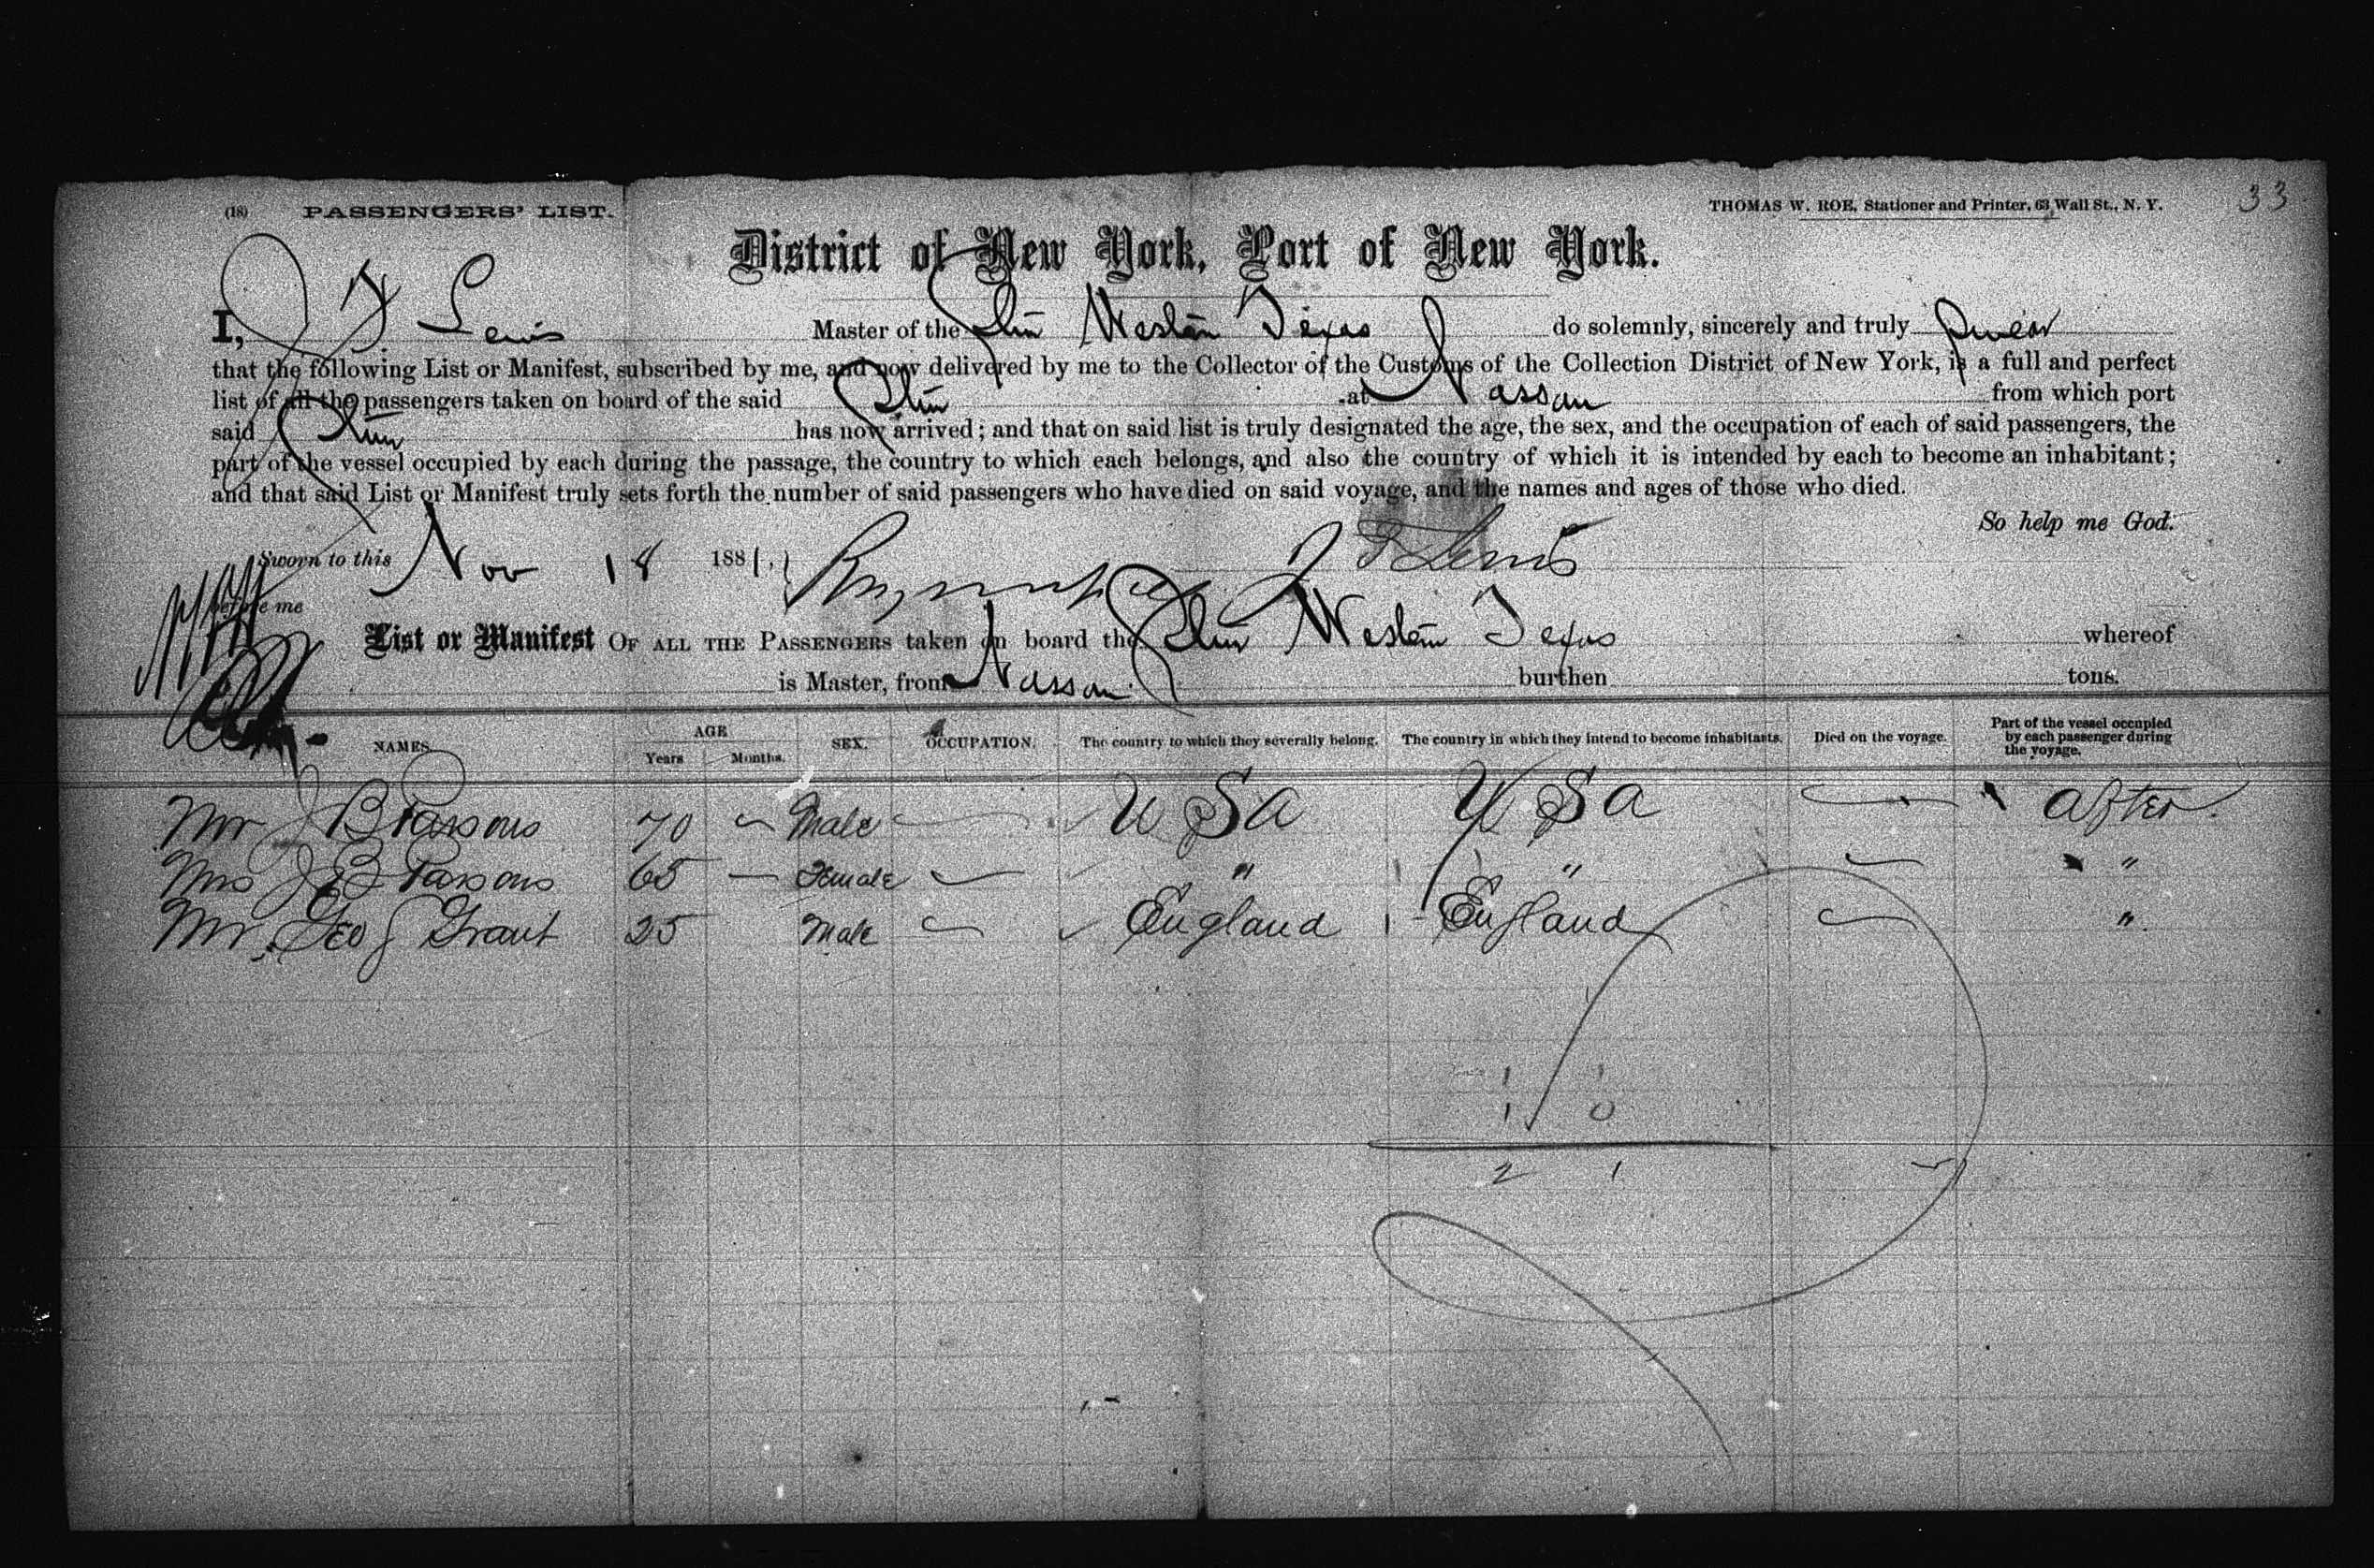 (18) PASSENGERS' LIST. THOMAS W. ROE, Stationer and Printer, 63 Wall St., N. Y. 33
District of New York, Port of New York.
I, J F Lewis Master of the Stm Western Texas do solemnly, sincerely and truly swear
that the following List or Manifest, subscribed by me, and now delivered by me to the Collector of the Customs of the Collection District of New York, is a full and perfect
list of all the passengers taken on board of the said Stm at Nassau from which port
said Stm has now arrived; and that on said list is truly designated the age, the sex, and the occupation of each of said passengers, the
part of the vessel occupied by each during the passage, the country to which each belongs, and also the country of which it is intended by each to become an inhabitant;
and that said List or Manifest truly sets forth the number of said passengers who have died on said voyage, and the names and ages of those who died.
So help me God.
Sworn to this Nov 18 1881, J F Lewis
before me
List or Manifest OF ALL THE PASSENGERS taken on board the Stm Western Texas whereof
is Master, from Nassau burthen tons.
NAMES. AGE Years Months. SEX. OCCUPATION. The country to which they severally belong. The country in which they intend to become inhabitants. Died on the voyage. Part of the vessel occupied by each passenger during the voyage.
Mr J B Parsons 70 — Male — U S A U S A — After.
Mrs J B Parsons 65 — Female — " " — "
Mr. Geo J Grant 25 Male — England England — "
1 1
1 0
2 1